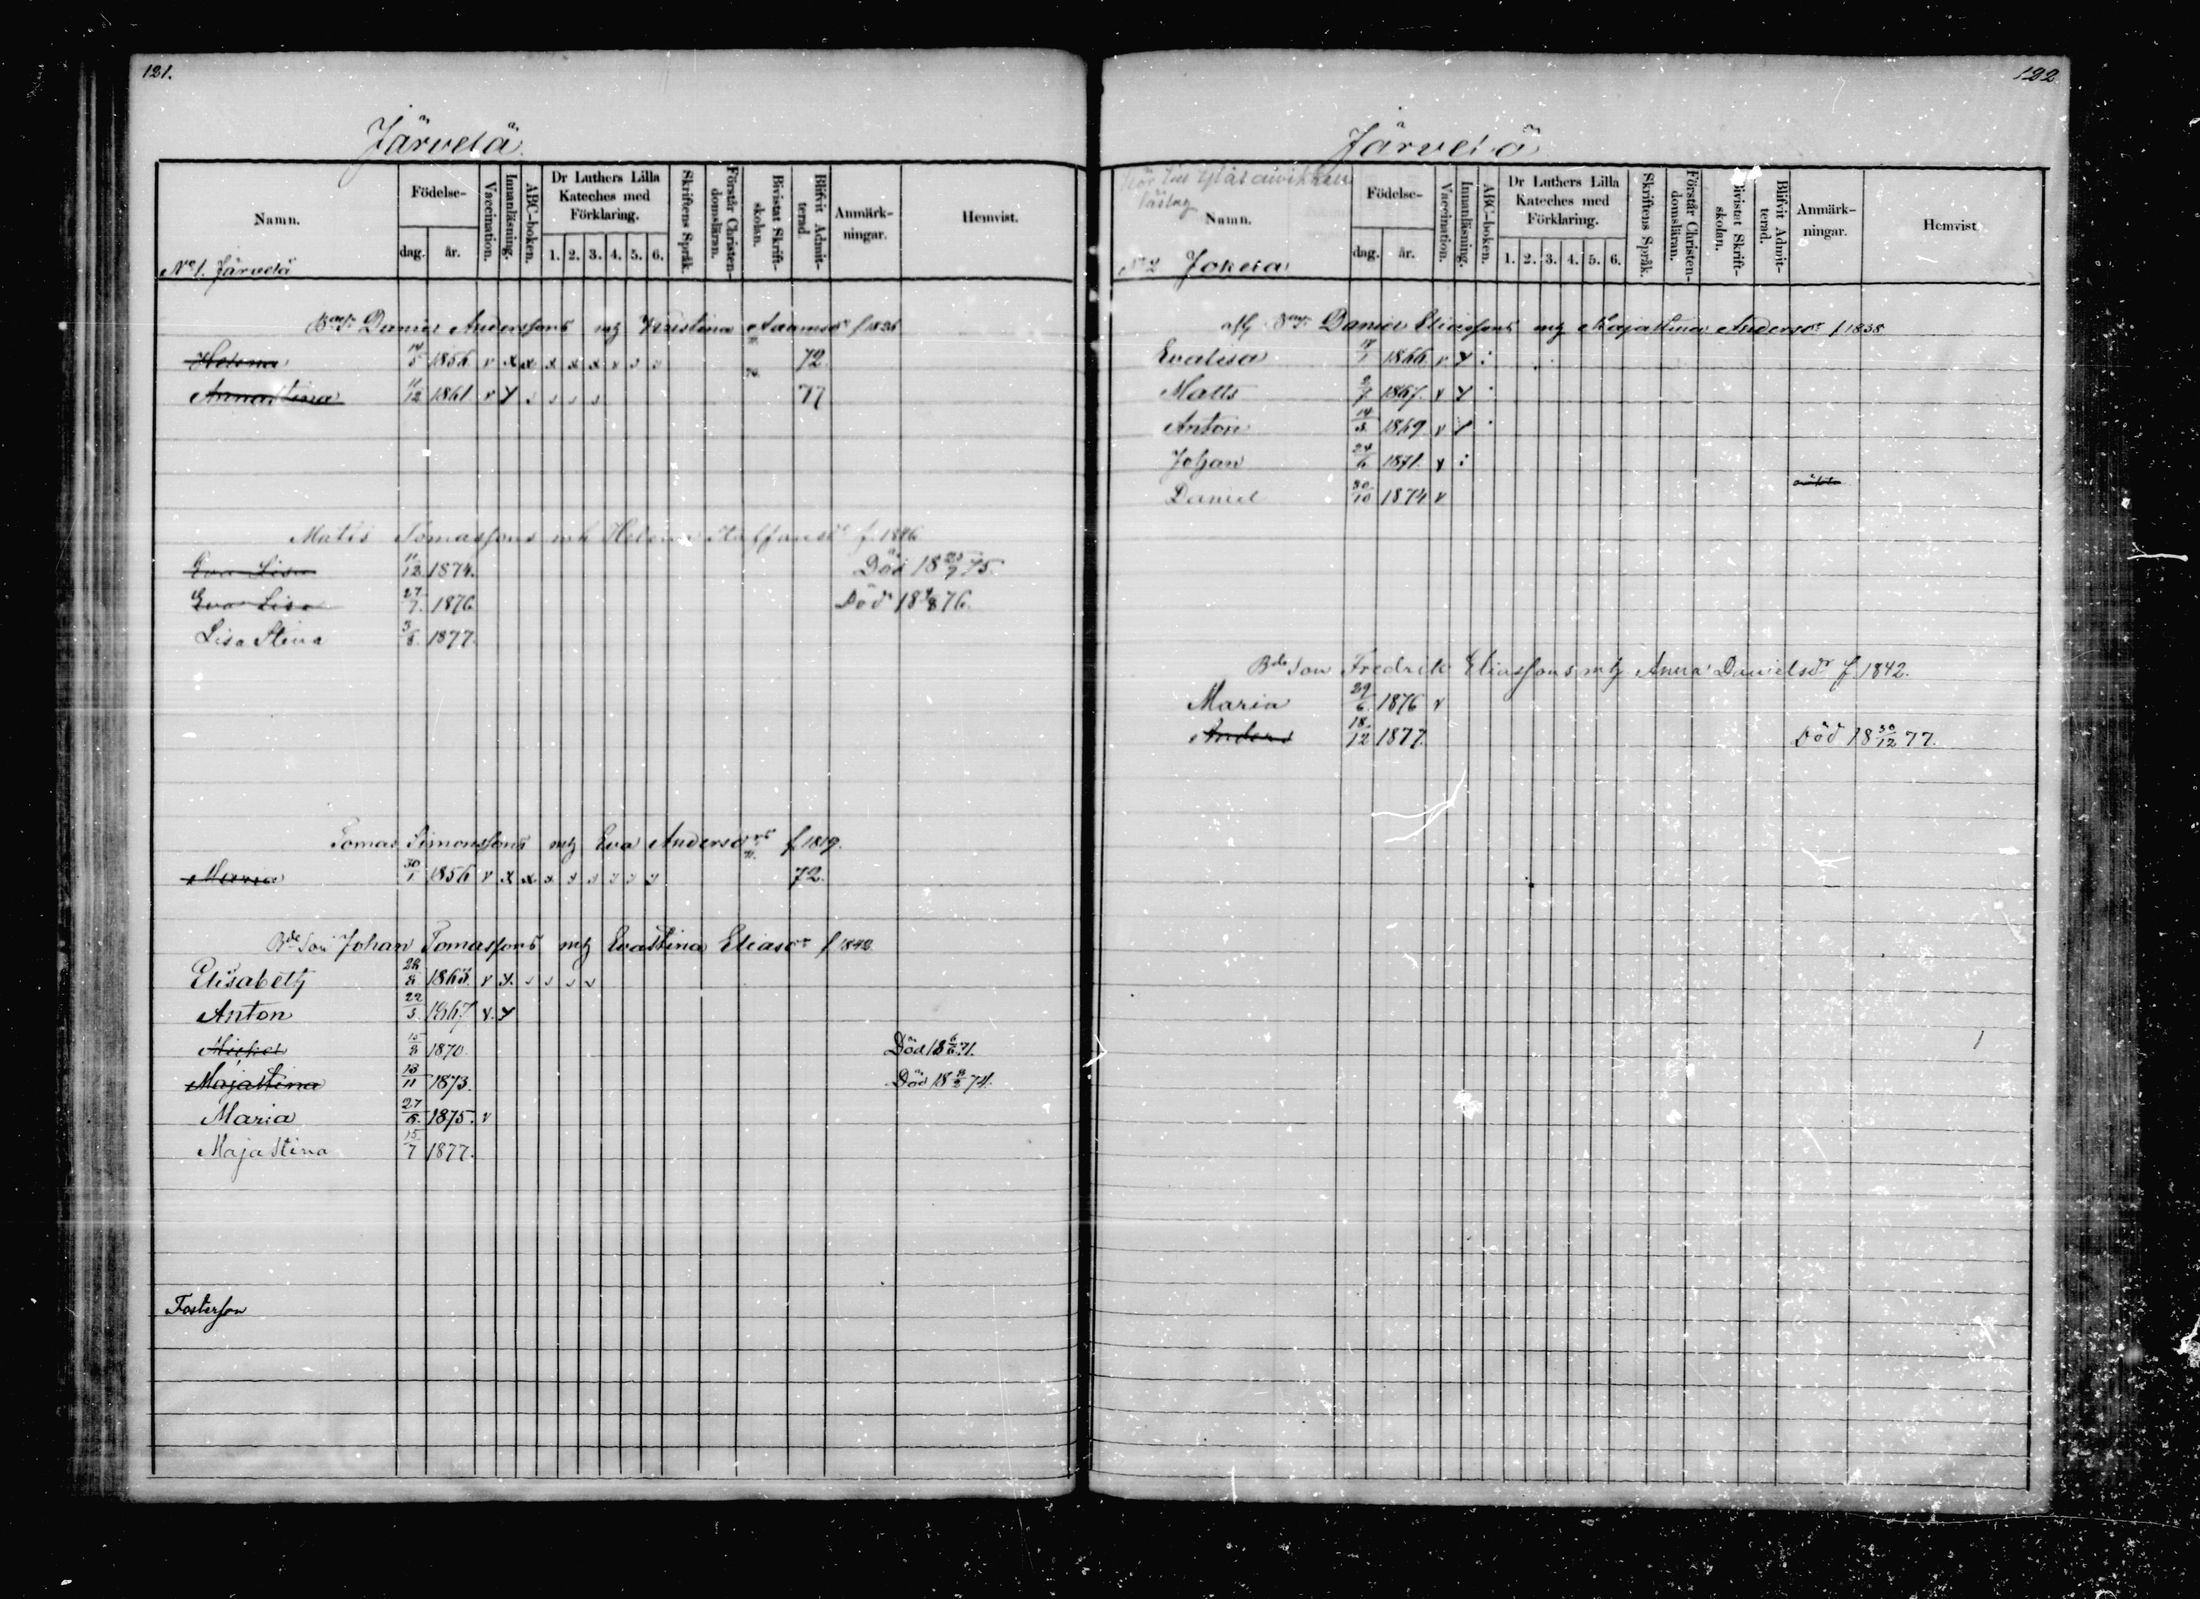 121.
Järvelä
Namn.
Födelse-
dag. år.
Vaccination.
Innanläsning.
ABC-boken.
Dr Luthers Lilla Kateches med Förklaring.
1. 2. 3. 4. 5. 6.
Skriftens Språk.
Förstår Christendomsläran.
Bivistat Skriftskolan.
Blifvit Admitterad.
Anmärkningar.
Hemvist.
No 1. Järvelä
Daniel Anderssons mg Kristina Adamsdr f 1825
Helena 14/5 1856 v x x x x x v v v 72.
Annastina 11/12 1861 v y v v v v 77
Matts Tomassons mh Helena Staffansdr f. 1846
Eva Lisa 11/12 1874. Död 18 25/7 75.
Eva Lisa 27/7 1876 Död 18 4/8 76.
Lisa Stina 3/8 1877.
Tomas Simonssons mg Eva Andersdrs f. 1819.
Maria 30/1 1856 v x x x v v v v v 72.
Bde Son Johan Tomassons mg Evastina Eliasdr f 1842
Elisabeth 1863 v y. v v v v
Anton 22/3 1867 v. y
Mickel 15/8 1870. Död 18 6/6 71.
Majastina 13/11 1873. Död 18 8/2 74.
Maria 27/6 1875. v
Maja Stina 15/7 1877.
Fosterson
122.
Järvelä
Namn.
Födelse-
dag. år.
Vaccination.
Innanläsning.
ABC-boken.
Dr Luthers Lilla Kateches med Förklaring.
1. 2. 3. 4. 5. 6.
Skriftens Språk.
Förstår Christendomsläran.
Bivistat Skriftskolan.
Blifvit Admitterad.
Anmärkningar.
Hemvist
No 2 Jokela
Daniel Eliassons mg Majastina Andersdr f 1838
Evalisa 1866 v y :
Matts 2/7 1867. v y
Anton 14/3 1869 v y
Johan 24/6 1871. v :
Daniel 30/10 1874 v
Bde Son Fredrik Eliassons mg Anna Danielsdr f 1842.
Maria 29/6 1876 v
Anders 18/12 1877. Död 18 30/12 77.